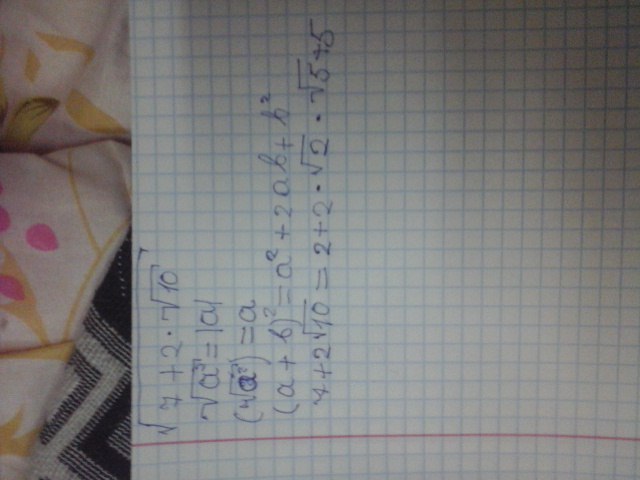 √(7+2·√10)
√a² = |a|
(√a²) = a
(a+b)² = a² + 2ab + b²
7+2√10 = 2+2·√2·√5+5